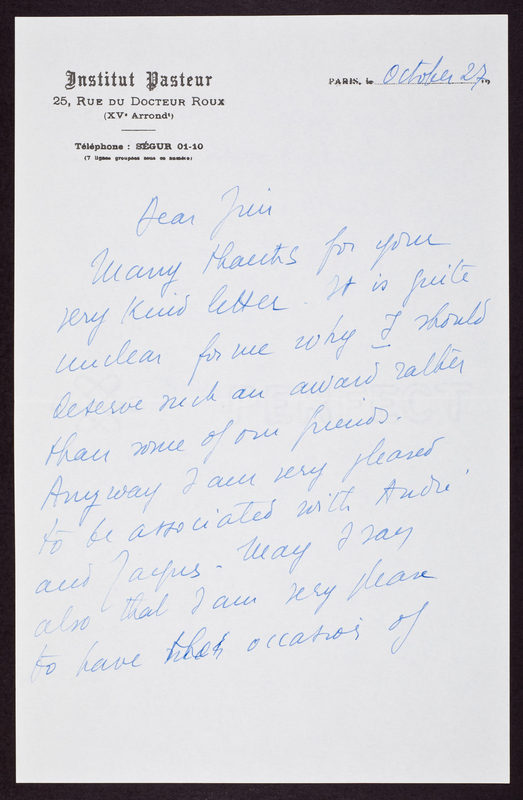 Institut Pasteur
25, RUE DU DOCTEUR ROUX
(XVe Arrondt)
Téléphone : SÉGUR 01-10
(7 lignes groupées sous ce numéro)
PARIS, le October 27 19
Dear Jim
Many thanks for your
very kind letter. It is quite
unclear for me why I should
deserve such an award rather
than some of our friends.
Anyway I am very pleased
to be associated with André
and Jacques. May I say
also that I am very please
to have occasion of